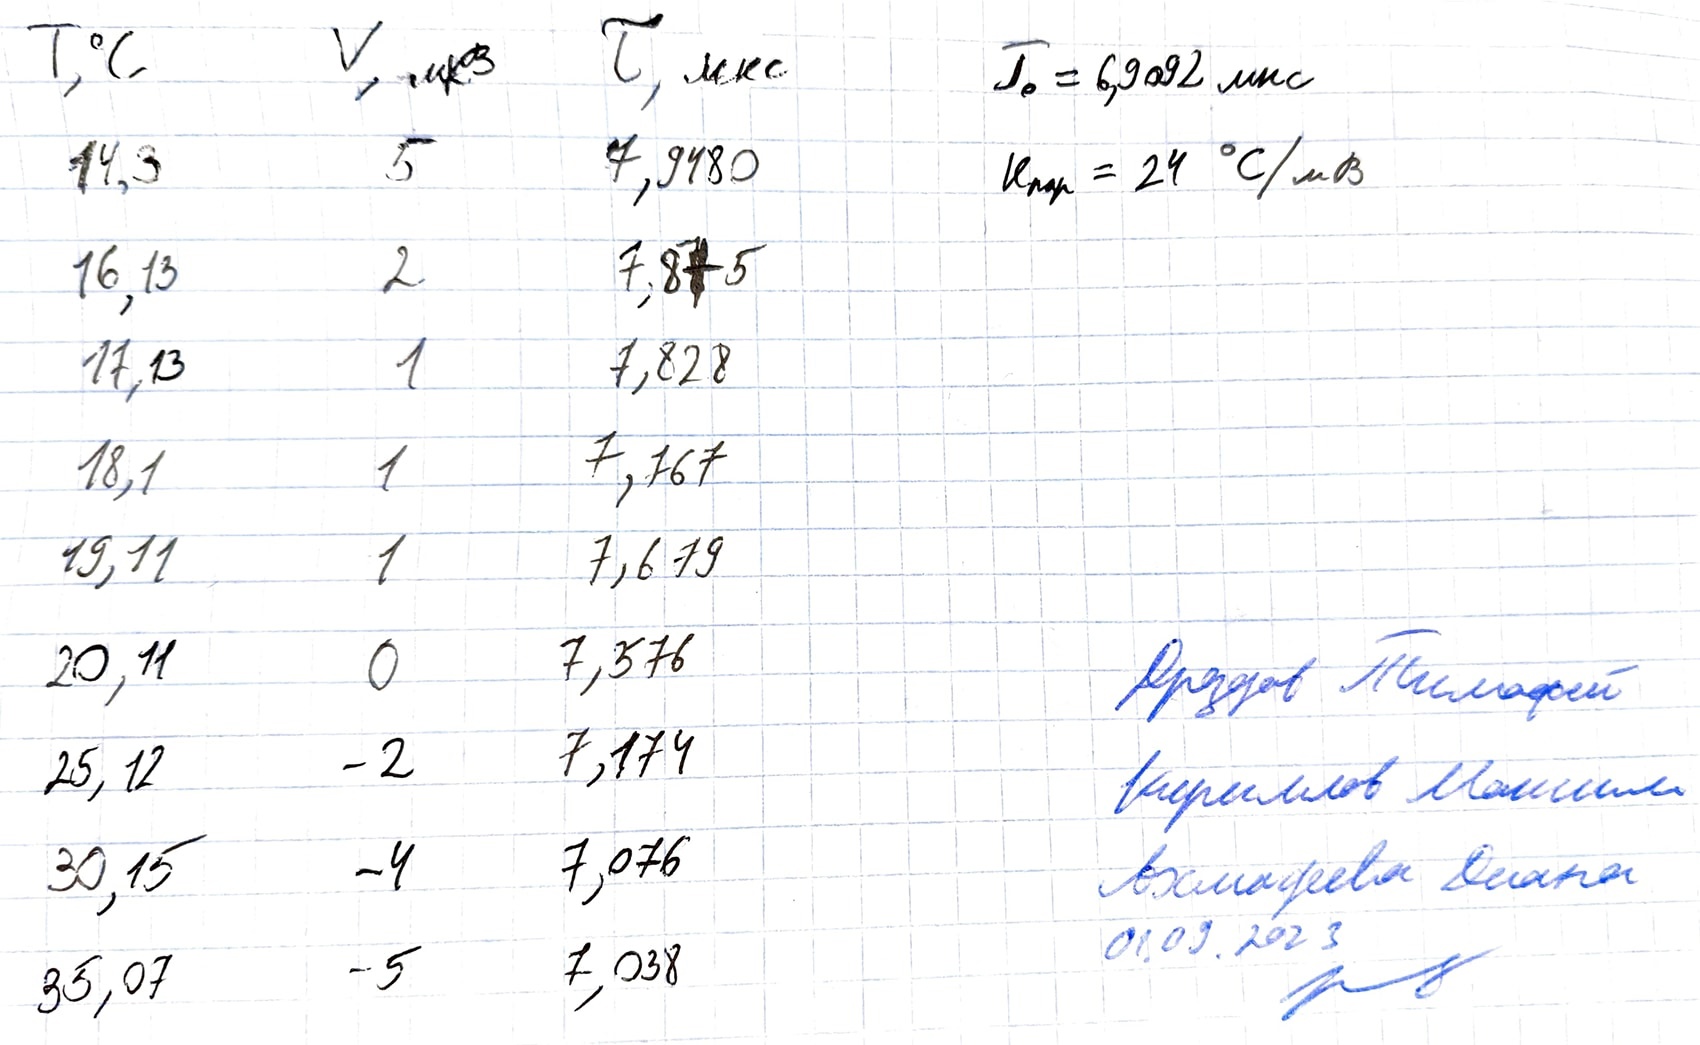 T, °C V, мкВ τ, мкс
14,3 5 7,9480
16,13 2 7,875
17,13 1 7,828
18,1 1 7,767
19,11 1 7,679
20,11 0 7,576
25,12 -2 7,174
30,15 -4 7,076
35,07 -5 7,038
τ₀ = 6,9092 мкс
Kпар = 24 °C/мВ
Дроздов Тимофей
Кириллов Максим
Ахмадеева Диана
01.09.2023